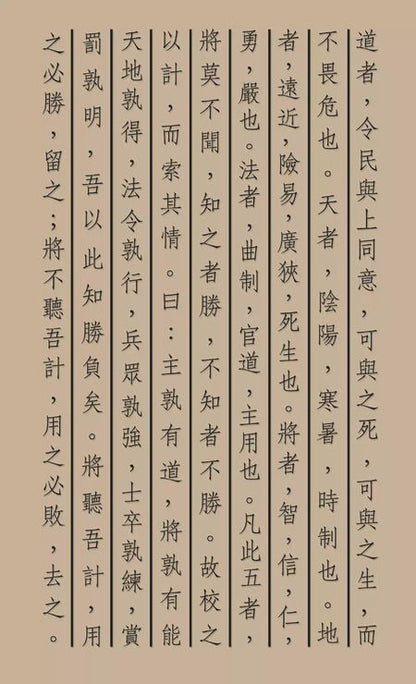 道者，令民與上同意，可與之死，可與之生，而
不畏危也。天者，陰陽，寒暑，時制也。地
者，遠近，險易，廣狹，死生也。將者，智，信，仁，
勇，嚴也。法者，曲制，官道，主用也。凡此五者，
將莫不聞，知之者勝，不知者不勝。故校之
以計，而索其情。曰：主孰有道，將孰有能
天地孰得，法令孰行，兵眾孰強，士卒孰練，賞
罰孰明，吾以此知勝負矣。將聽吾計，用
之必勝，留之；將不聽吾計，用之必敗，去之。